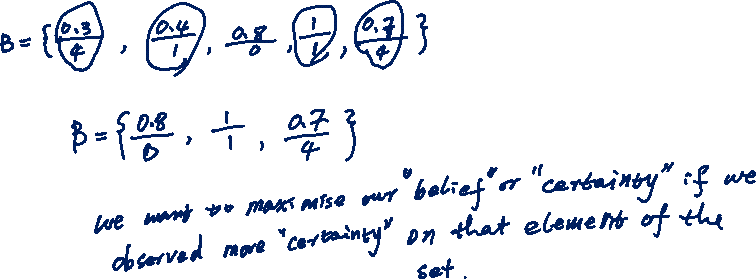 B = { 0.3/4 , 0.4/1 , 0.8/0 , 1/1 , 0.7/4 }
B = { 0.8/0 , 1/1 , 0.7/4 }
we want to maximise our "belief" or "certainty" if we
observed more "certainty" on that element of the
set.